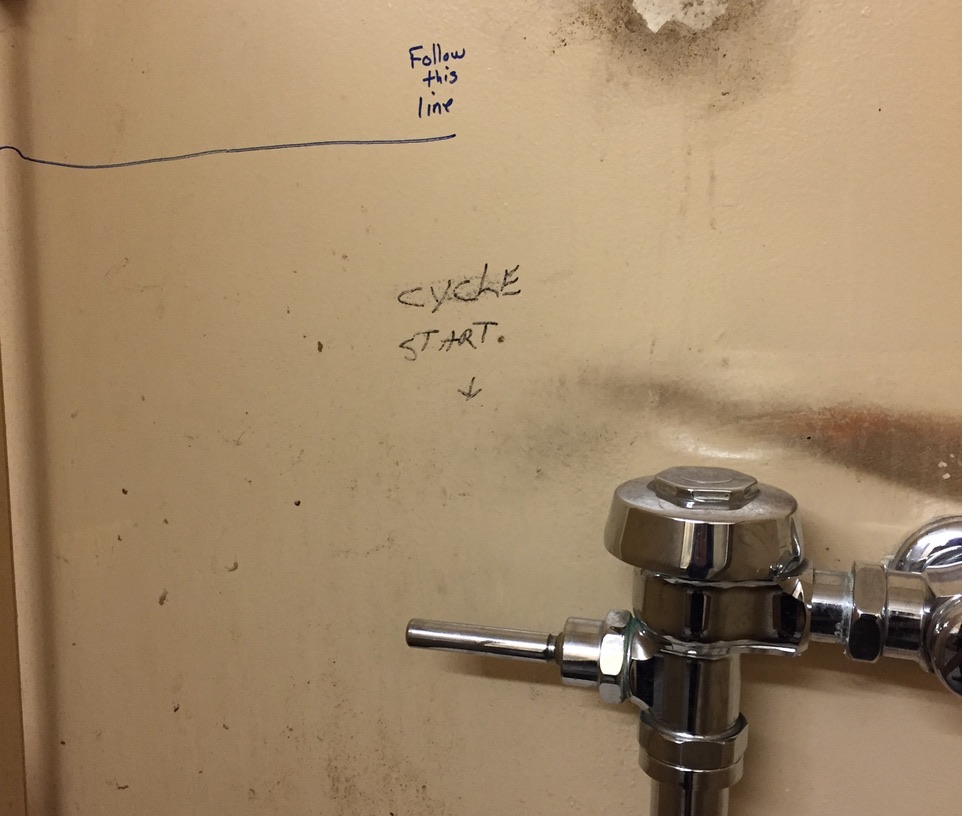 Follow
this
line
CYCLE
START.
↓